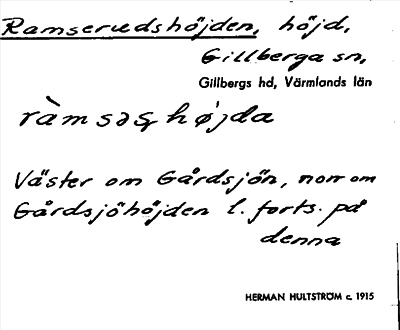 Ramserudshöjden, höjd,
Gillberga sn,
Gillbergs hd, Värmlands län
ràmsəshøjda
Väster om Gårdsjön, norr om
Gårdsjöhöjden l. forts. på
denna
HERMAN HULTSTRÖM c. 1915